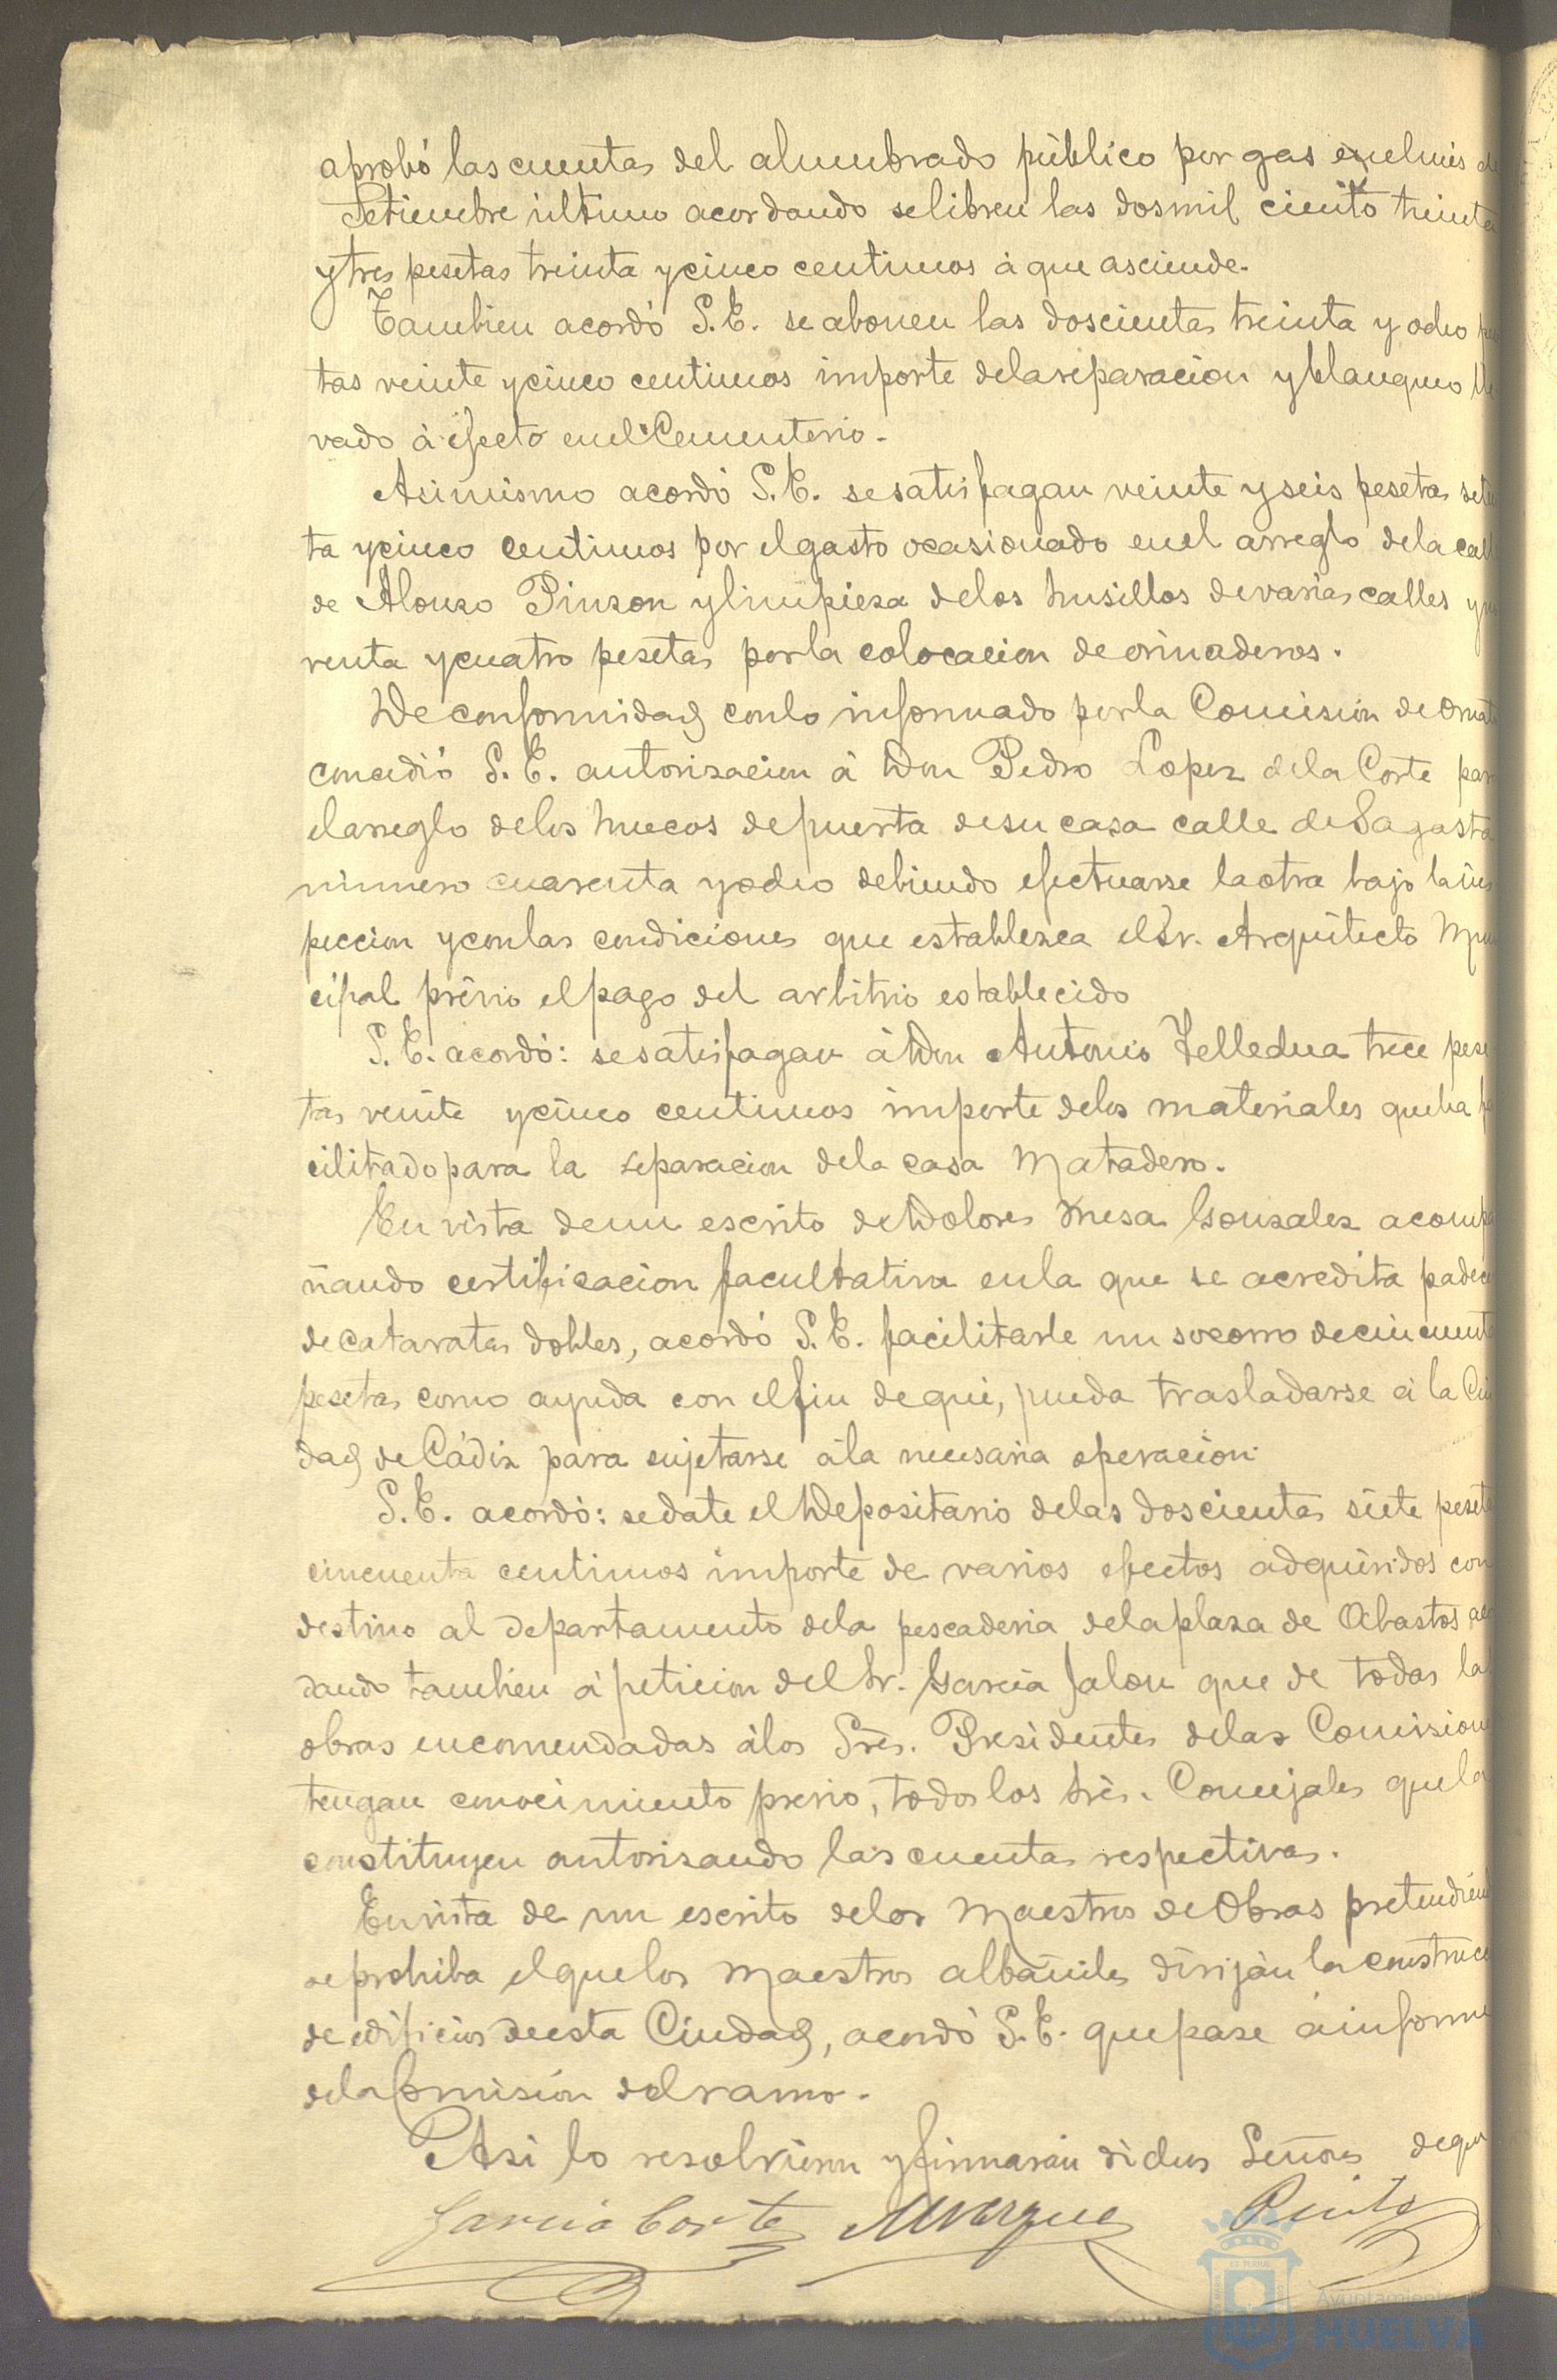 aprobó las cuentas del alumbrado público por gas en el mes de
Setiembre último acordando se libren las dos mil ciento treinta
y tres pesetas treinta y cinco centimos á que asciende.
Tambien acordó S.E. se abonen las doscientas treinta y ocho pese
tas veinte y cinco centimos importe de la reparacion y blanqueo lle
vado á efecto en el Cementerio.
Asimismo acordó S.E. se satisfagan veinte y seis pesetas seten
ta y cinco centimos por el gasto ocasionado en el arreglo de la calle
de Alonzo Pinzon y limpieza de los husillos de varias calles y no
venta y cuatro pesetas por la colocacion de orinaderos.
De conformidad con lo informado por la Comisión de Ornato
concedió S.E. autorizacion á Don Pedro Lopez de la Corte para
el arreglo de los huecos de puerta de su casa calle de Sagasta
número cuarenta y ocho debiendo efectuarse la otra bajo la ins
peccion y con las condiciones que establezca el Sr. Arquitecto Mu
cipal prévio el pago del arbitrio establecido
S.E. acordó: se satisfagan á Don Antonio trece pese
tas veinte y cinco centimos importe de los materiales que ha fa
cilitado para la reparacion de la casa Matadero.
En vista de un escrito de Dolores Mesa Gonzalez acompa
ñando certificacion facultativa en la que se acredita padece
de cataratas dobles, acordó S.E. facilitarle un socorro de cincuenta
pesetas como ayuda con el fin de que, pueda trasladarse á la Ciu
dad de Cádiz para sujetarse á la necesaria operación
S.E. acordó: se date el Depositario de las doscientas siete pesetas
cincuenta centimos importe de varios efectos adquiridos con
destino al departamento de la pescaderia de la plaza de Abastos acor
dando tambien á peticion del Sr. Garcia Jalon que de todas las
obras encomendadas á los Sres. Presidentes de las Comisiones
tengan conocimiento previo, todos los Sres. Concejales que la
constituyen autorizando las cuentas respectivas.
En vista de un escrito de los Maestros de Obras pretendiendo
se prohiba el que los Maestros albañiles dirijan la construccion
de edificios de esta Ciudad, acordó S.E. que pase á informe
de la Comisión del ramo.
Asi lo resolvieron y firmarán dichos Señores de que
Garcia Corte
Ayuntamiento de
HUELVA